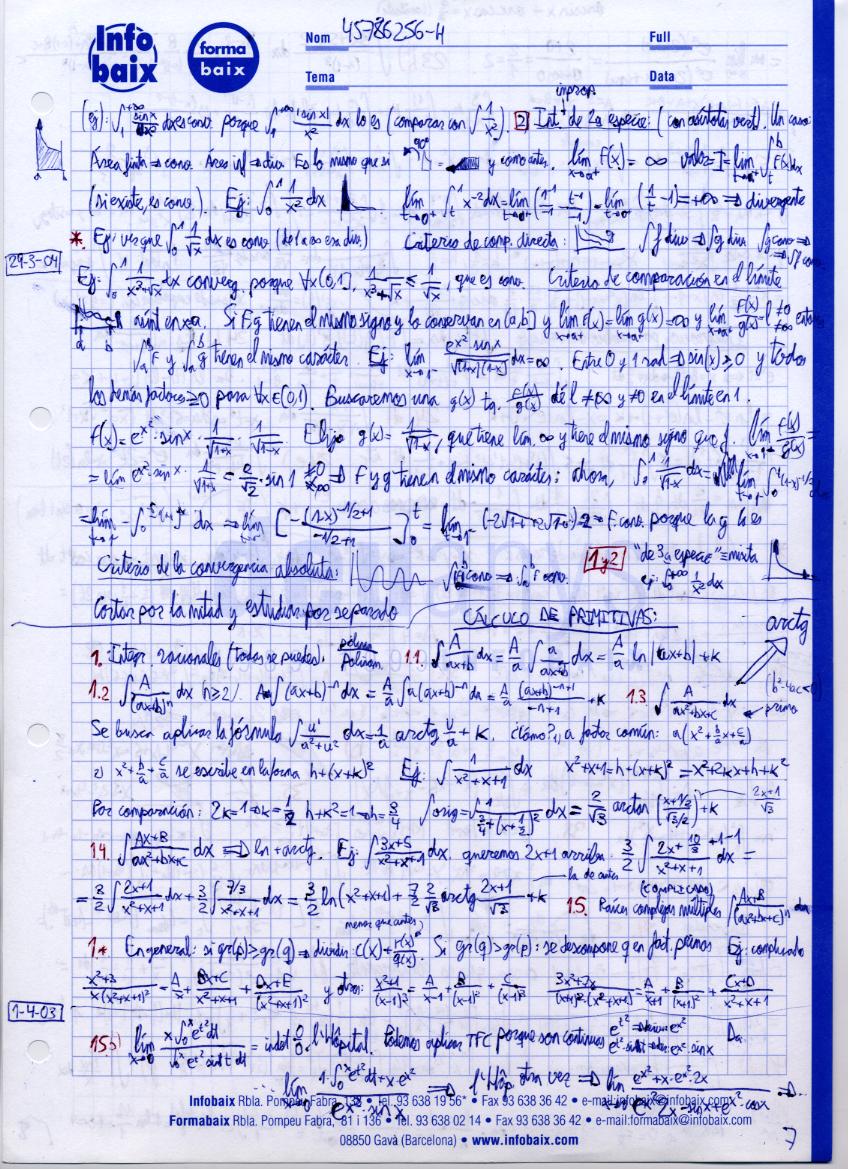 Info baix
forma baix
Nom 45786256-H
Full
Tema
Data
impropi
(ej): ∫₁^{+∞} sinx/x² dx es conv. porque ∫₁^{+∞} |sinx|/x² dx lo es (comparar con ∫ 1/x²). 2 Int. de 2a especie: (con asíntota vert). Un caso:
Área finita ⇒ conv. Área inf ⇒ div. Es lo mismo que si 90° = y como antes. lím_{x→a⁺} f(x) = ∞ valor = I = lím_{t→a⁺} ∫_t^b f(x)dx
(si existe, es conv.). Ej: ∫₀¹ 1/x² dx lím_{t→0⁺} ∫_t¹ x⁻²dx = lím_{t→0⁺} (1⁻¹/-1 - t⁻¹/-1) = lím_{t→0⁺} (1/t - 1) = +∞ ⇒ divergente
* Ej: ver que ∫₀¹ 1/√x dx es conv. (de 1 a ∞ era div.) Criterio de comp. directa: ∫f div ⇒ ∫g div ∫g conv ⇒ ∫f conv
29-3-04
Ej: ∫₀¹ 1/(x³+√x) dx converg. porque ∀x(0,1], 1/(x³+√x) ≤ 1/√x, que es conv. Criterio de comparación en el límite
asínt en x=a. Si f, g tienen el mismo signo y lo conservan en (a,b] y lím_{x→a⁺} f(x) = lím_{x→a⁺} g(x) = ∞ y lím_{x→a⁺} f(x)/g(x) = l ≠0 ≠∞ entonces
∫_a^b f y ∫_a^b g tienen el mismo carácter. Ej: lím_{x→1⁻} e^{x²} sinx/√((1+x)(1-x)) dx = ∞. Entre 0 y 1 rad ⇒ sin(x) ≥ 0 y todos
los demás factores ≥0 para ∀x∈(0,1). Buscaremos una g(x) tq. f(x)/g(x) dé l ≠∞ y ≠0 en el límite en 1.
f(x) = e^{x²}·sinx·1/√(1+x)·1/√(1-x). Elijo g(x) = 1/√(1-x), que tiene lím. ∞ y tiene el mismo signo que f. lím_{x→1⁻} f(x)/g(x) =
= lím e^{x²}·sinx·1/√(1+x) = e/√2·sin 1 ≠0 ≠∞ ⇒ f y g tienen el mismo carácter; ahora, ∫₀¹ 1/√(1-x) dx = lím_{t→1⁻} ∫₀^t (1-x)^{-1/2} dx
= lím_{t→1⁻} -∫₀^t dx = lím_{t→1⁻} [-(1-x)^{-1/2+1}/(-1/2+1)]₀^t = lím_{t→1⁻} (-2√(1-t)+2√(1-0)) = 2 ⇒ f conv. porque la g lo es
Criterio de la convergencia absoluta: conv ⇒ ∫ f conv. 1 y 2 "de 3a especie" = mixta
ej: ∫₀^{+∞} 1/x² dx
Cortar por la mitad y estudiar por separado
CÁLCULO DE PRIMITIVAS:
arctg
1. Integr. racionales (todas se puede). polinom/Polinom. 1.1. ∫ A/(ax+b) dx = A/a ∫ a/(ax+b) dx = A/a ln|ax+b| + k
1.2 ∫ A/(ax+b)ⁿ dx (n≥2). A∫(ax+b)⁻ⁿ dx = A/a ∫a(ax+b)⁻ⁿ dx = A/a (ax+b)^{-n+1}/(-n+1) + k 1.3. ∫ A/(ax²+bx+c) dx (b²-4ac<0) primo
Se busca aplicar la fórmula ∫ u'/(a²+u²) dx = 1/a arctg u/a + k. ¿Cómo? 1) a factor común: a(x²+b/a x+c/a)
2) x²+b/a+c/a se escribe en la forma h+(x+k)² Ej: ∫ 1/(x²+x+1) dx x²+x+1 = h+(x+k)² = x²+2kx+h+k²
Por comparación: 2k=1 ⇒ k=1/2 h+k²=1 ⇒ h=3/4 ∫orig = ∫ 1/(3/4+(x+1/2)²) dx = 2/√3 arctan ((x+1/2)/(√3/2)) + k (2x+1)/√3
1.4. ∫ (Ax+B)/(ax²+bx+c) dx ⇒ ln + arctg. Ej: ∫ (3x+5)/(x²+x+1) dx, queremos 2x+1 arriba. 3/2 ∫ (2x+10/3+1-1)/(x²+x+1) dx =
= 3/2 ∫ (2x+1)/(x²+x+1) dx + 3/2 ∫ (7/3)/(x²+x+1) dx = 3/2 ln(x²+x+1) + 7/2 2/√3 arctg (2x+1)/√3 + k la de antes
(COMPLICADO)
1.5. Raíces complejas múltiples ∫ (Ax+B)/(ax²+bx+c)ⁿ dx
menor que antes
1.* En general: si gr(p)>gr(q) ⇒ dividir C(x)+r(x)/q(x). Si gr(q)>gr(p): se descompone q en fact. primos Ej: complicado
(x²+3)/(x(x²+x+1)²) = A/x + (Bx+C)/(x²+x+1) + (Dx+E)/(x²+x+1)² y otros: (x²+1)/(x-1)³ = A/(x-1) + B/(x-1)² + C/(x-1)³ (3x²+2x)/((x+1)²(x²+x+1)) = A/(x+1) + B/(x+1)² + (Cx+D)/(x²+x+1)
1-4-03
15b) lím_{x→0} x∫₀^x e^{t²}dt / ∫₀^x e^{t²} sint dt = indet 0/0. l'Hôpital. Podemos aplicar TFC porque son continuas e^{t²} ⇒ e^{x²} e^{t²}·sint ⇒ e^{x²}·sinx Da
lím_{x→0} (1·∫₀^x e^{t²}dt + x·e^{x²})/(e^{x²}·sinx) ⇒ l'Hôp otra vez ⇒ lím (e^{x²}+x·e^{x²}·2x)/(e^{x²}2x·sinx+e^{x²}·cosx) ⇒
Infobaix Rbla. Pompeu Fabra, 138 • Tel. 93 638 19 56* • Fax 93 638 36 42 • e-mail:infobaix@infobaix.com
Formabaix Rbla. Pompeu Fabra, 81 i 136 • Tel. 93 638 02 14 • Fax 93 638 36 42 • e-mail:formabaix@infobaix.com
08850 Gavà (Barcelona) • www.infobaix.com
7